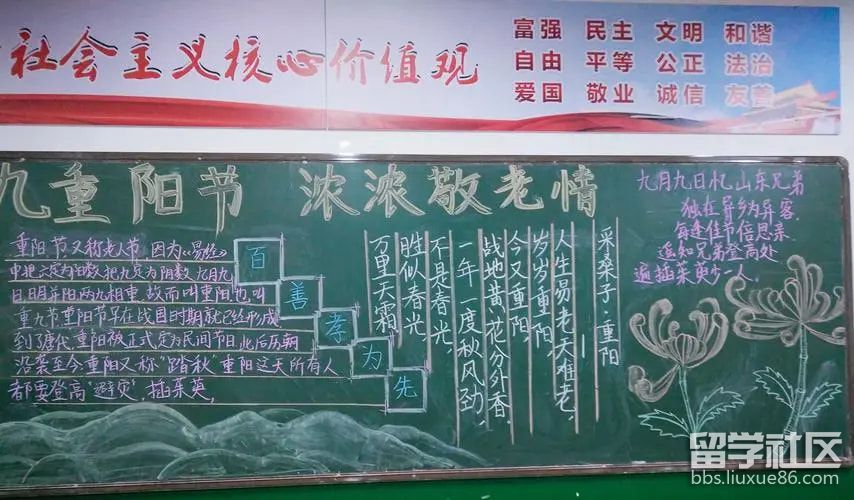 社会主义核心价值观
富强 民主 文明 和谐
自由 平等 公正 法治
爱国 敬业 诚信 友善
九重阳节 浓浓敬老情
重阳节,又称老人节,因为《易经》
中把六定为阴数,把九定为阳数,九月九
日,日月并阳两九相重,故而叫重阳,也叫
重九节重阳节早在战国时期就已经形成
到了唐代重阳被正式定为民间节日,此后历朝
沿袭至今,重阳又称"踏秋"重阳这天所有人
都要登高"避灾",插茱萸,
百
善
孝
为
先
采桑子·重阳
人生易老天难老,
岁岁重阳,
今又重阳,
战地黄花分外香.
一年一度秋风劲,
不是春光,
胜似春光,
万里天霜
九月九日忆山东兄弟
独在异乡为异客.
每逢佳节倍思亲
遥知兄弟登高处
遍插茱萸少一人.
留学社区
bbs.liuxue86.com